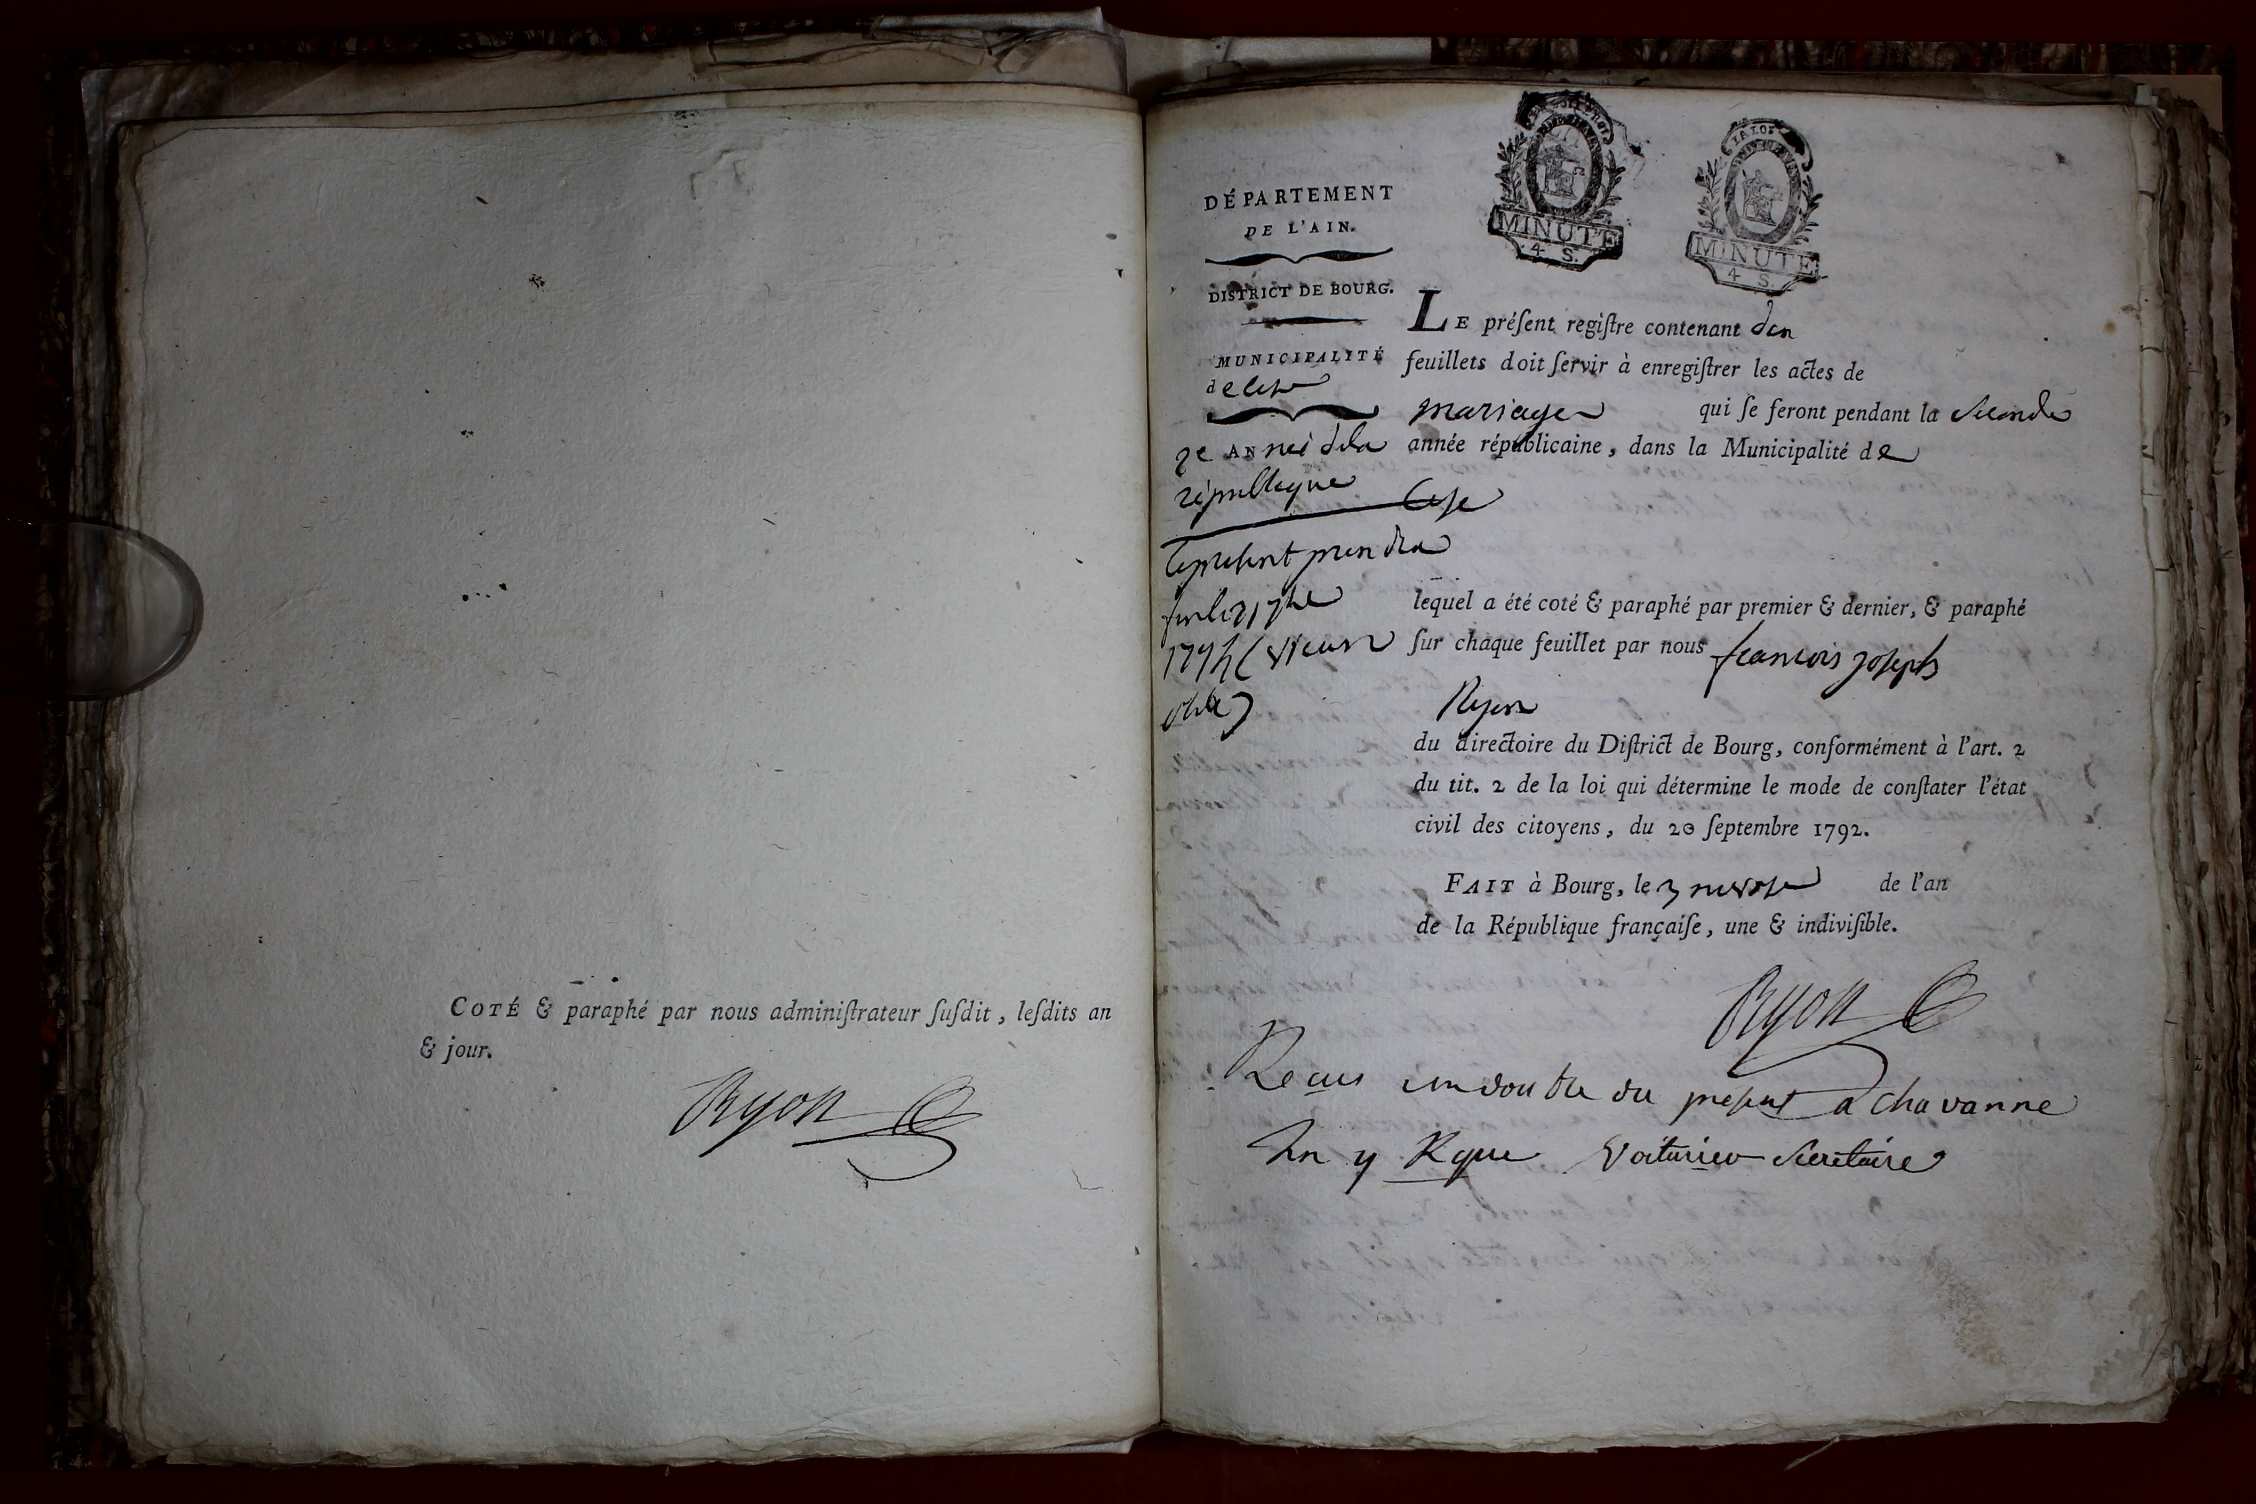 COTÉ & paraphé par nous adminiſtrateur ſuſdit, leſdits an
& jour.
Ryon
LA LOI
MINUTE
4 S.
LA LOI
MINUTE
4 S.
DÉPARTEMENT
DE L'AIN.
DISTRICT DE BOURG.
MUNICIPALITÉ
de
2e ANnée dela
république
LE préſent regiſtre contenant
feuillets doit ſervir à enregiſtrer les actes de
mariages qui ſe feront pendant la Seconde
année républicaine, dans la Municipalité de
lequel a été coté & paraphé par premier & dernier, & paraphé
ſur chaque feuillet par nous francois joseph
Ryon
du directoire du Diſtrict de Bourg, conformément à l'art. 2
du tit. 2 de la loi qui détermine le mode de conſtater l'état
civil des citoyens, du 20 ſeptembre 1792.
FAIT à Bourg, le 3 nivose de l'an
de la République françaiſe, une & indiviſible.
Ryon
le present prendra
Recus un double du present a chavanne
Voiturier Secretaire